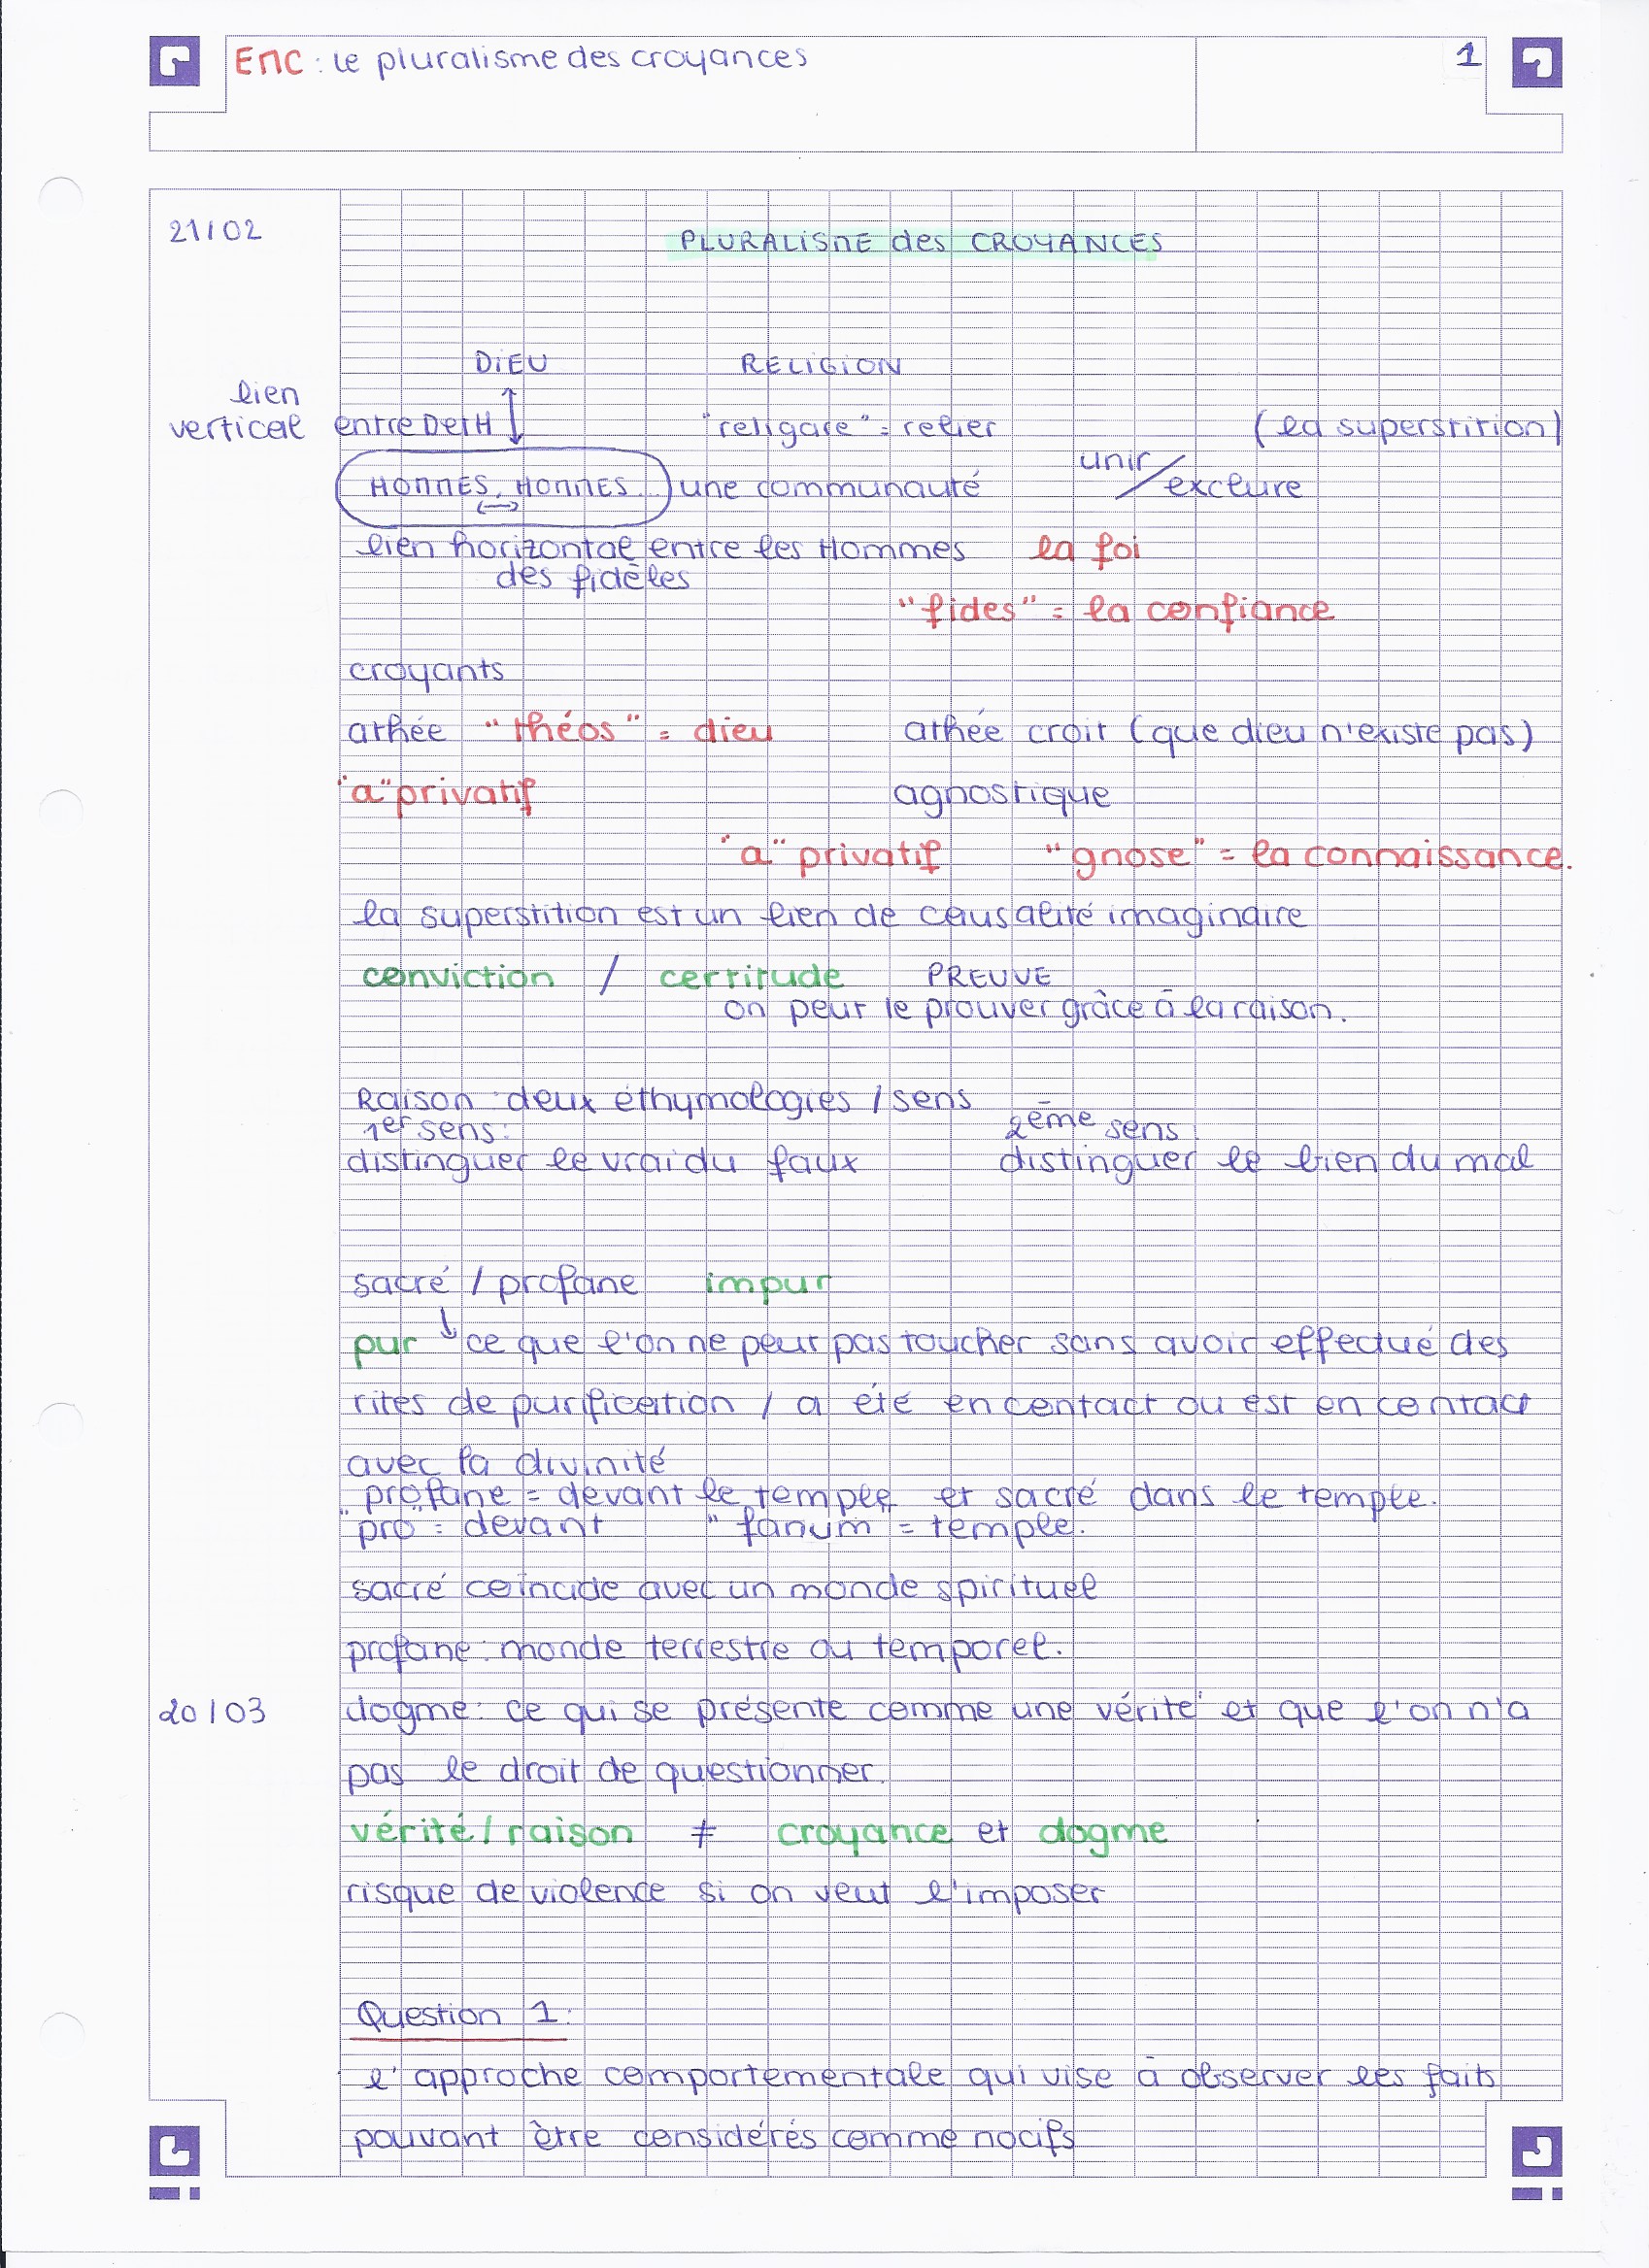 EMC : le pluralisme des croyances
1
21/02
PLURALISME des CROYANCES
DIEU RELIGION
lien
vertical entre D et H "religare" = relier (la superstition)
unir
HOMMES, HOMMES une communauté / exclure
lien horizontal entre les Hommes la foi
des fidèles
"fides" = la confiance
croyants
athée "théos" = dieu athée croit (que dieu n'existe pas)
"a" privatif agnostique
"a" privatif "gnose" = la connaissance.
la superstition est un lien de causalité imaginaire
conviction / certitude PREUVE
on peut le prouver grâce à la raison.
Raison : deux éthymologies / sens
1er sens: 2ème sens
distinguer le vrai du faux distinguer le bien du mal
sacré / profane impur
pur ↓ ce que l'on ne peut pas toucher sans avoir effectué des
rites de purification / a été en contact ou est en contact
avec la divinité
profane = devant le temple et sacré dans le temple.
"pro" = devant "fanum" = temple.
sacré coïncide avec un monde spirituel
profane : monde terrestre ou temporel.
20/03 dogme : ce qui se présente comme une vérité et que l'on n'a
pas le droit de questionner.
vérité / raison ≠ croyance et dogme
risque de violence si on veut l'imposer
Question 1:
l'approche comportementale qui vise à observer les faits
pouvant être considérés comme nocifs